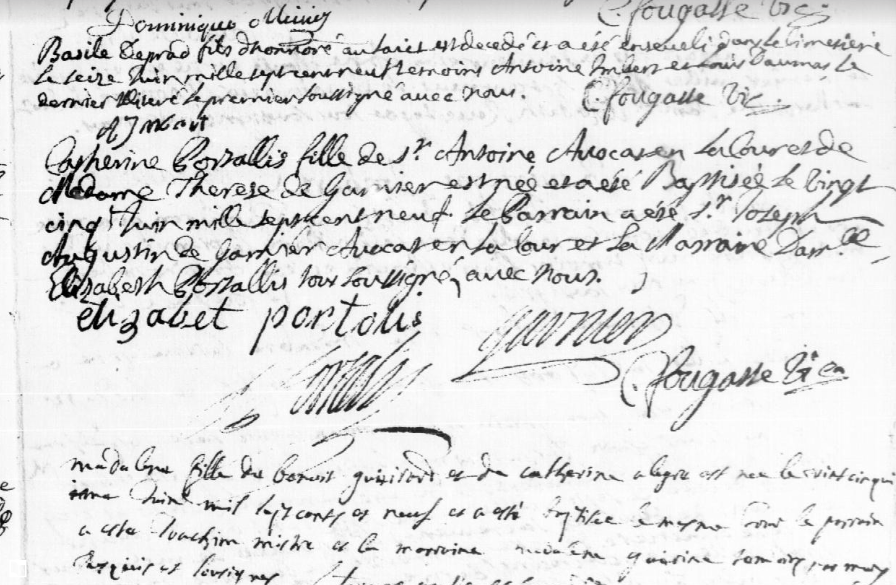 Dominique
C. fougasse Vic.
Basile Deprad fils d'honnoré autaict est decedé et a été enseveli dans le Cimetiere
Le seize Juin mille sept cent neuf temoins Antoine Imbert et Louis Daumas Le
dernier illiteré le premier soussigné avec nous.
C. fougasse Vic.
A Imbert
Catherine Portallis fille de Sr. Antoine Avocat en la Cour et de
Madame Therese de Garnier est née et a été Baptisée Le vingt
cinq Juin mille sept cent neuf Le Parrain a été Sr. Joseph
Augustin de Garnier Avocat en la Cour et La Marraine Damlle
Elisabeth Portallis tous soussigné avec nous.
elizabet portalis
garnier
C. fougasse Vic
madalene fille de benoit et de catherine alegre est nee le vint cinqui
Juin mil sept cents et neuf et a esté batisée le mesme jour le parrain
a esté Joachim mistre et la marraine madalene temoins